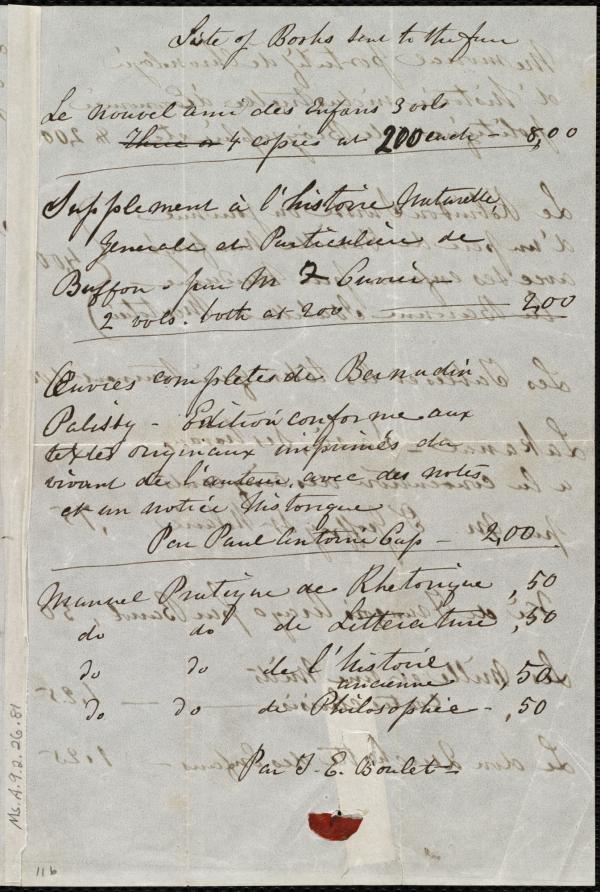 Liste of Books sent to the fair
Le nouvel ami des Enfans 3 vols
Three or 4 copies at 200 each - 8,00
Supplement à l'histoire Naturelle,
Generale et Particuliere de
Buffon - par M F Cuvier -
2 vols. both at 200 2,00
Œuvres completes de Bernadin
Palissy - Edition conforme aux
textes originaux imprimés du
vivant de l'auteur, avec des notes
et un notice Historique
Par Paul Antoine Cap - 2,00.
Manuel Pratique de Rhetorique ,50
do do de Litterature ,50
do do de l'histoire
ancienne ,50
do do de Philosophie - ,50
Par J. E. Boulet -
Ms. A. 9. 2. 26. 81
116